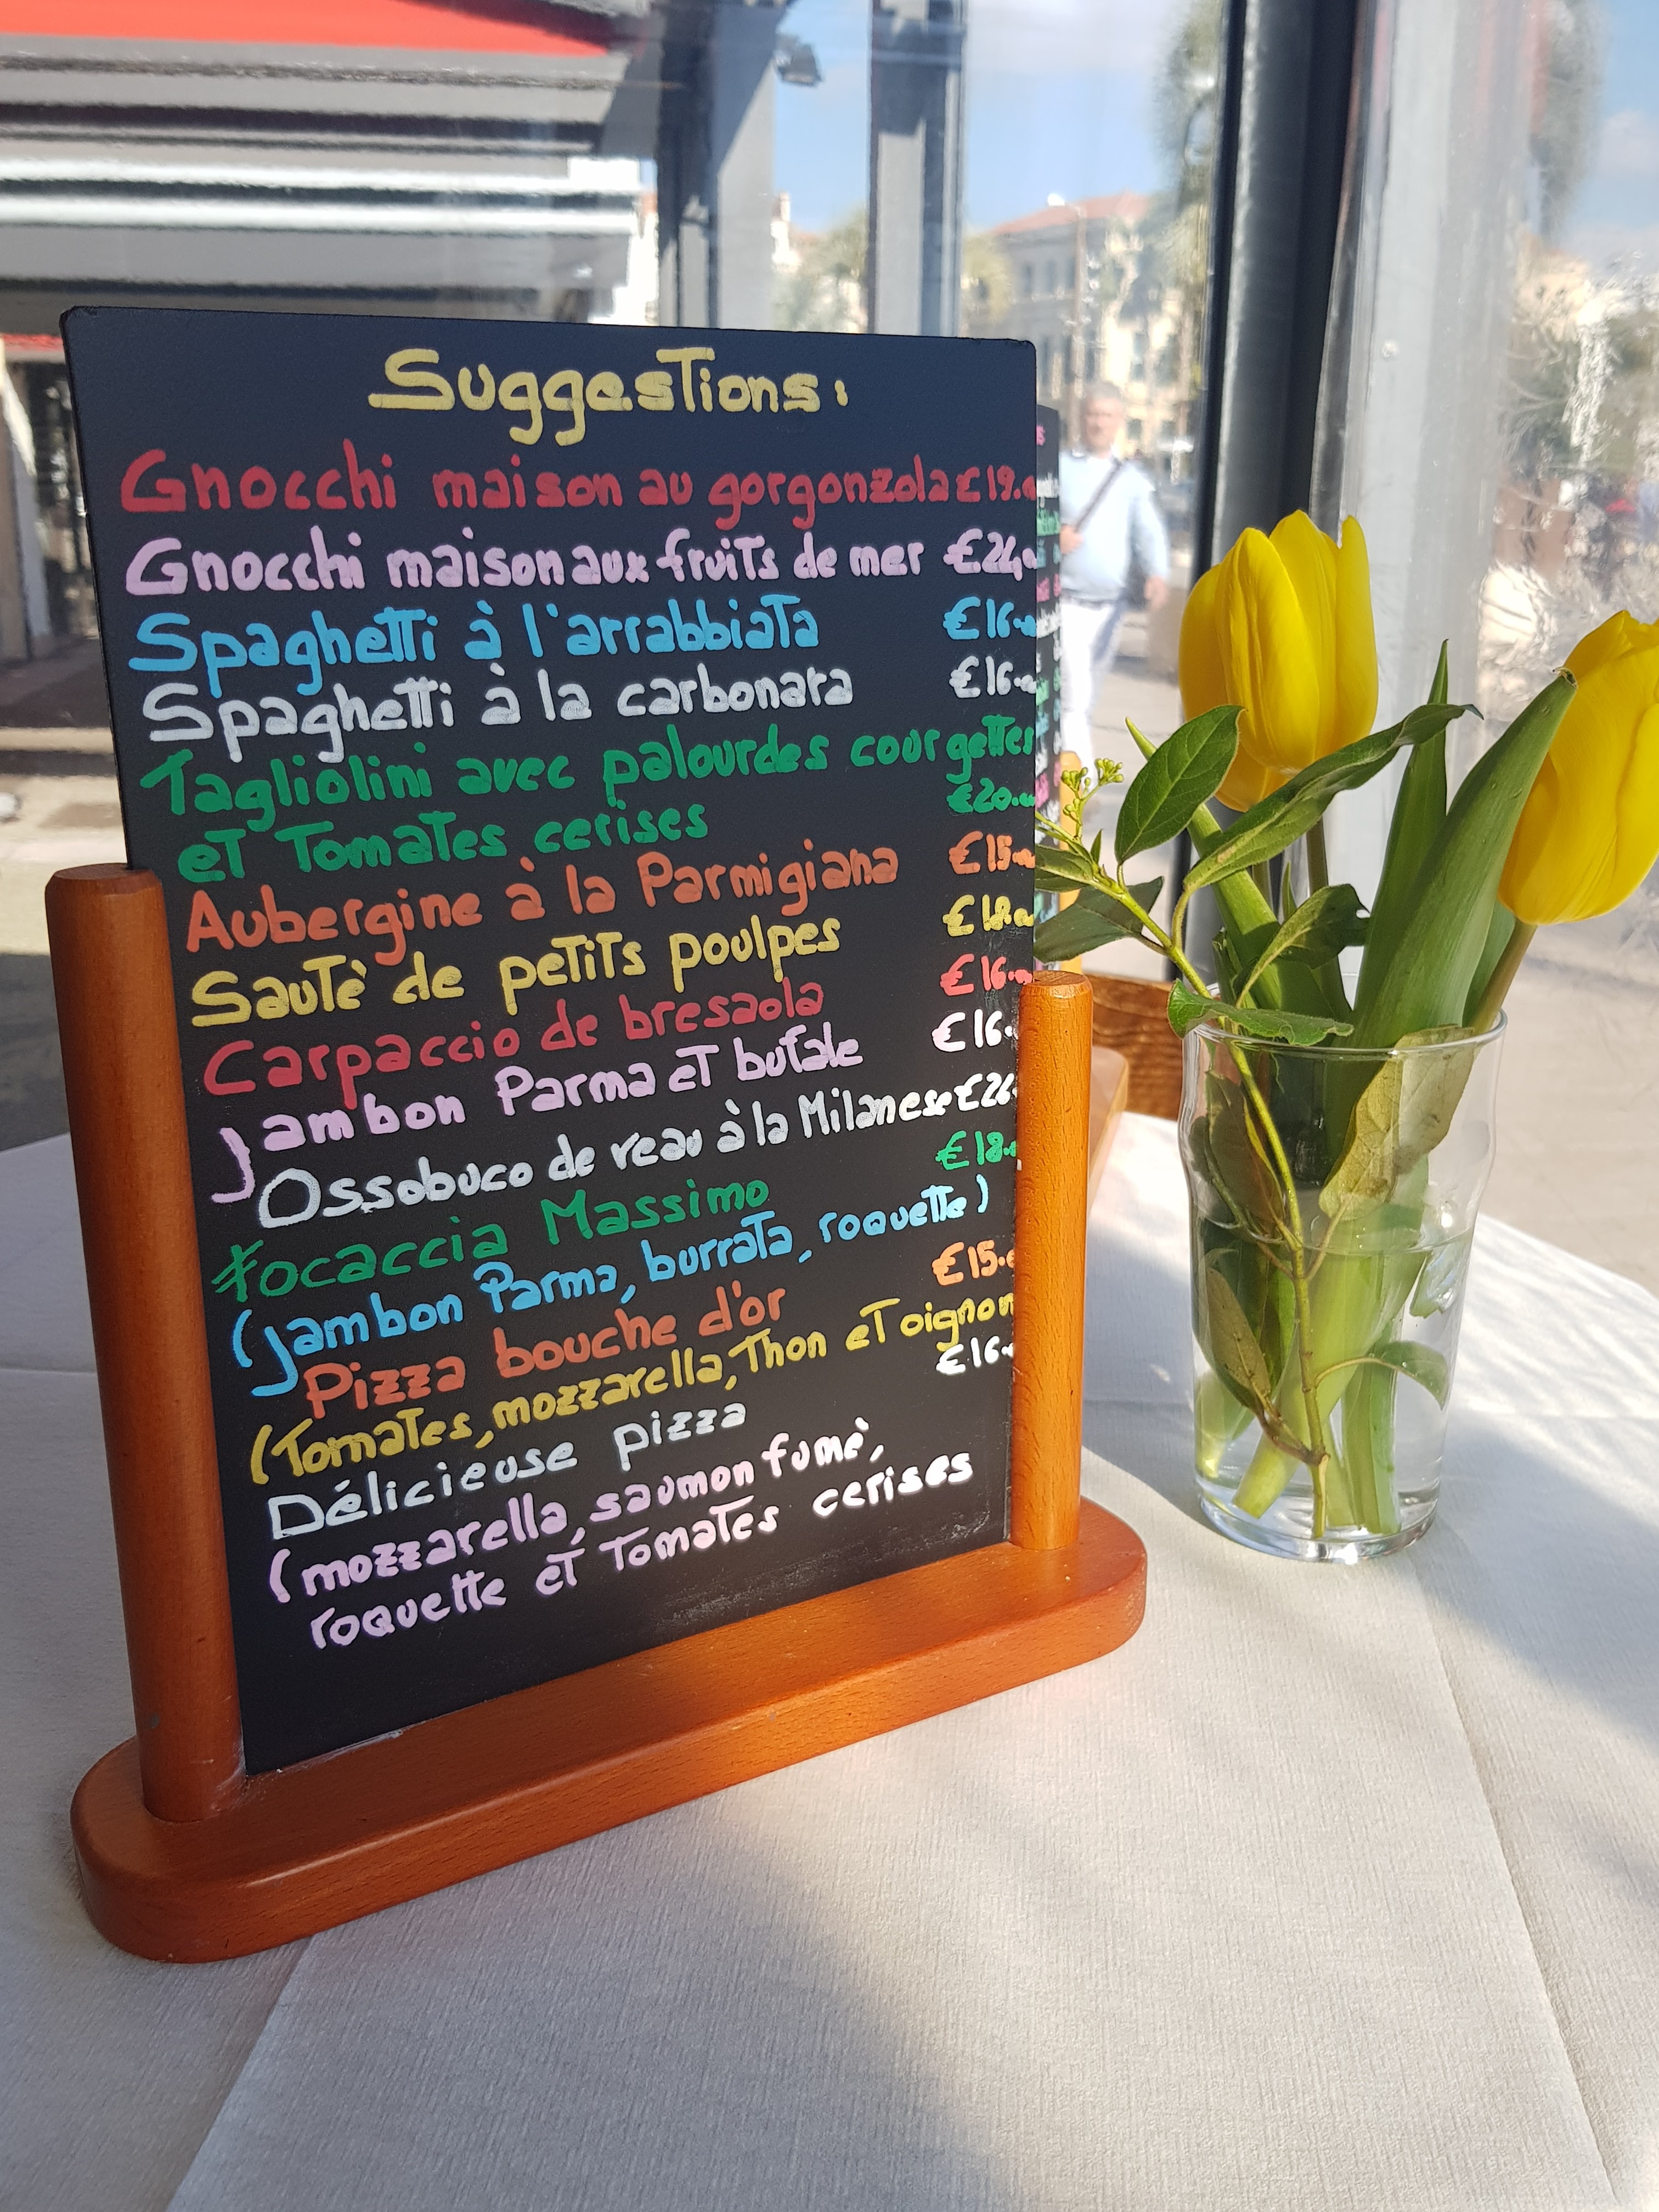 Suggestions:
Gnocchi maison au gorgonzola €19.
Gnocchi maison aux fruits de mer €24
Spaghetti à l'arrabbiata €16.
Spaghetti à la carbonara €16.
Tagliolini avec palourdes courgettes
et Tomates cerises €20.
Aubergine à la Parmigiana €15.
Sautè de petits poulpes €18.
Carpaccio de bresaola €16.
Jambon Parma et bufale €16.
Ossobuco de veau à la Milanese €26.
Focaccia Massimo €18.
(jambon Parma, burrata, roquette)
Pizza bouche d'or €15.
(Tomates, mozzarella, Thon et oignon
Délicieuse pizza €16.
(mozzarella, saumon fumè,
roquette et Tomates cerises